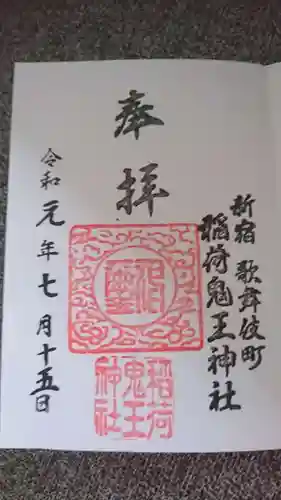 新宿 歌舞伎町
稲荷鬼王神社
奉拝
稲荷
鬼王
神社
令和元年七月十五日